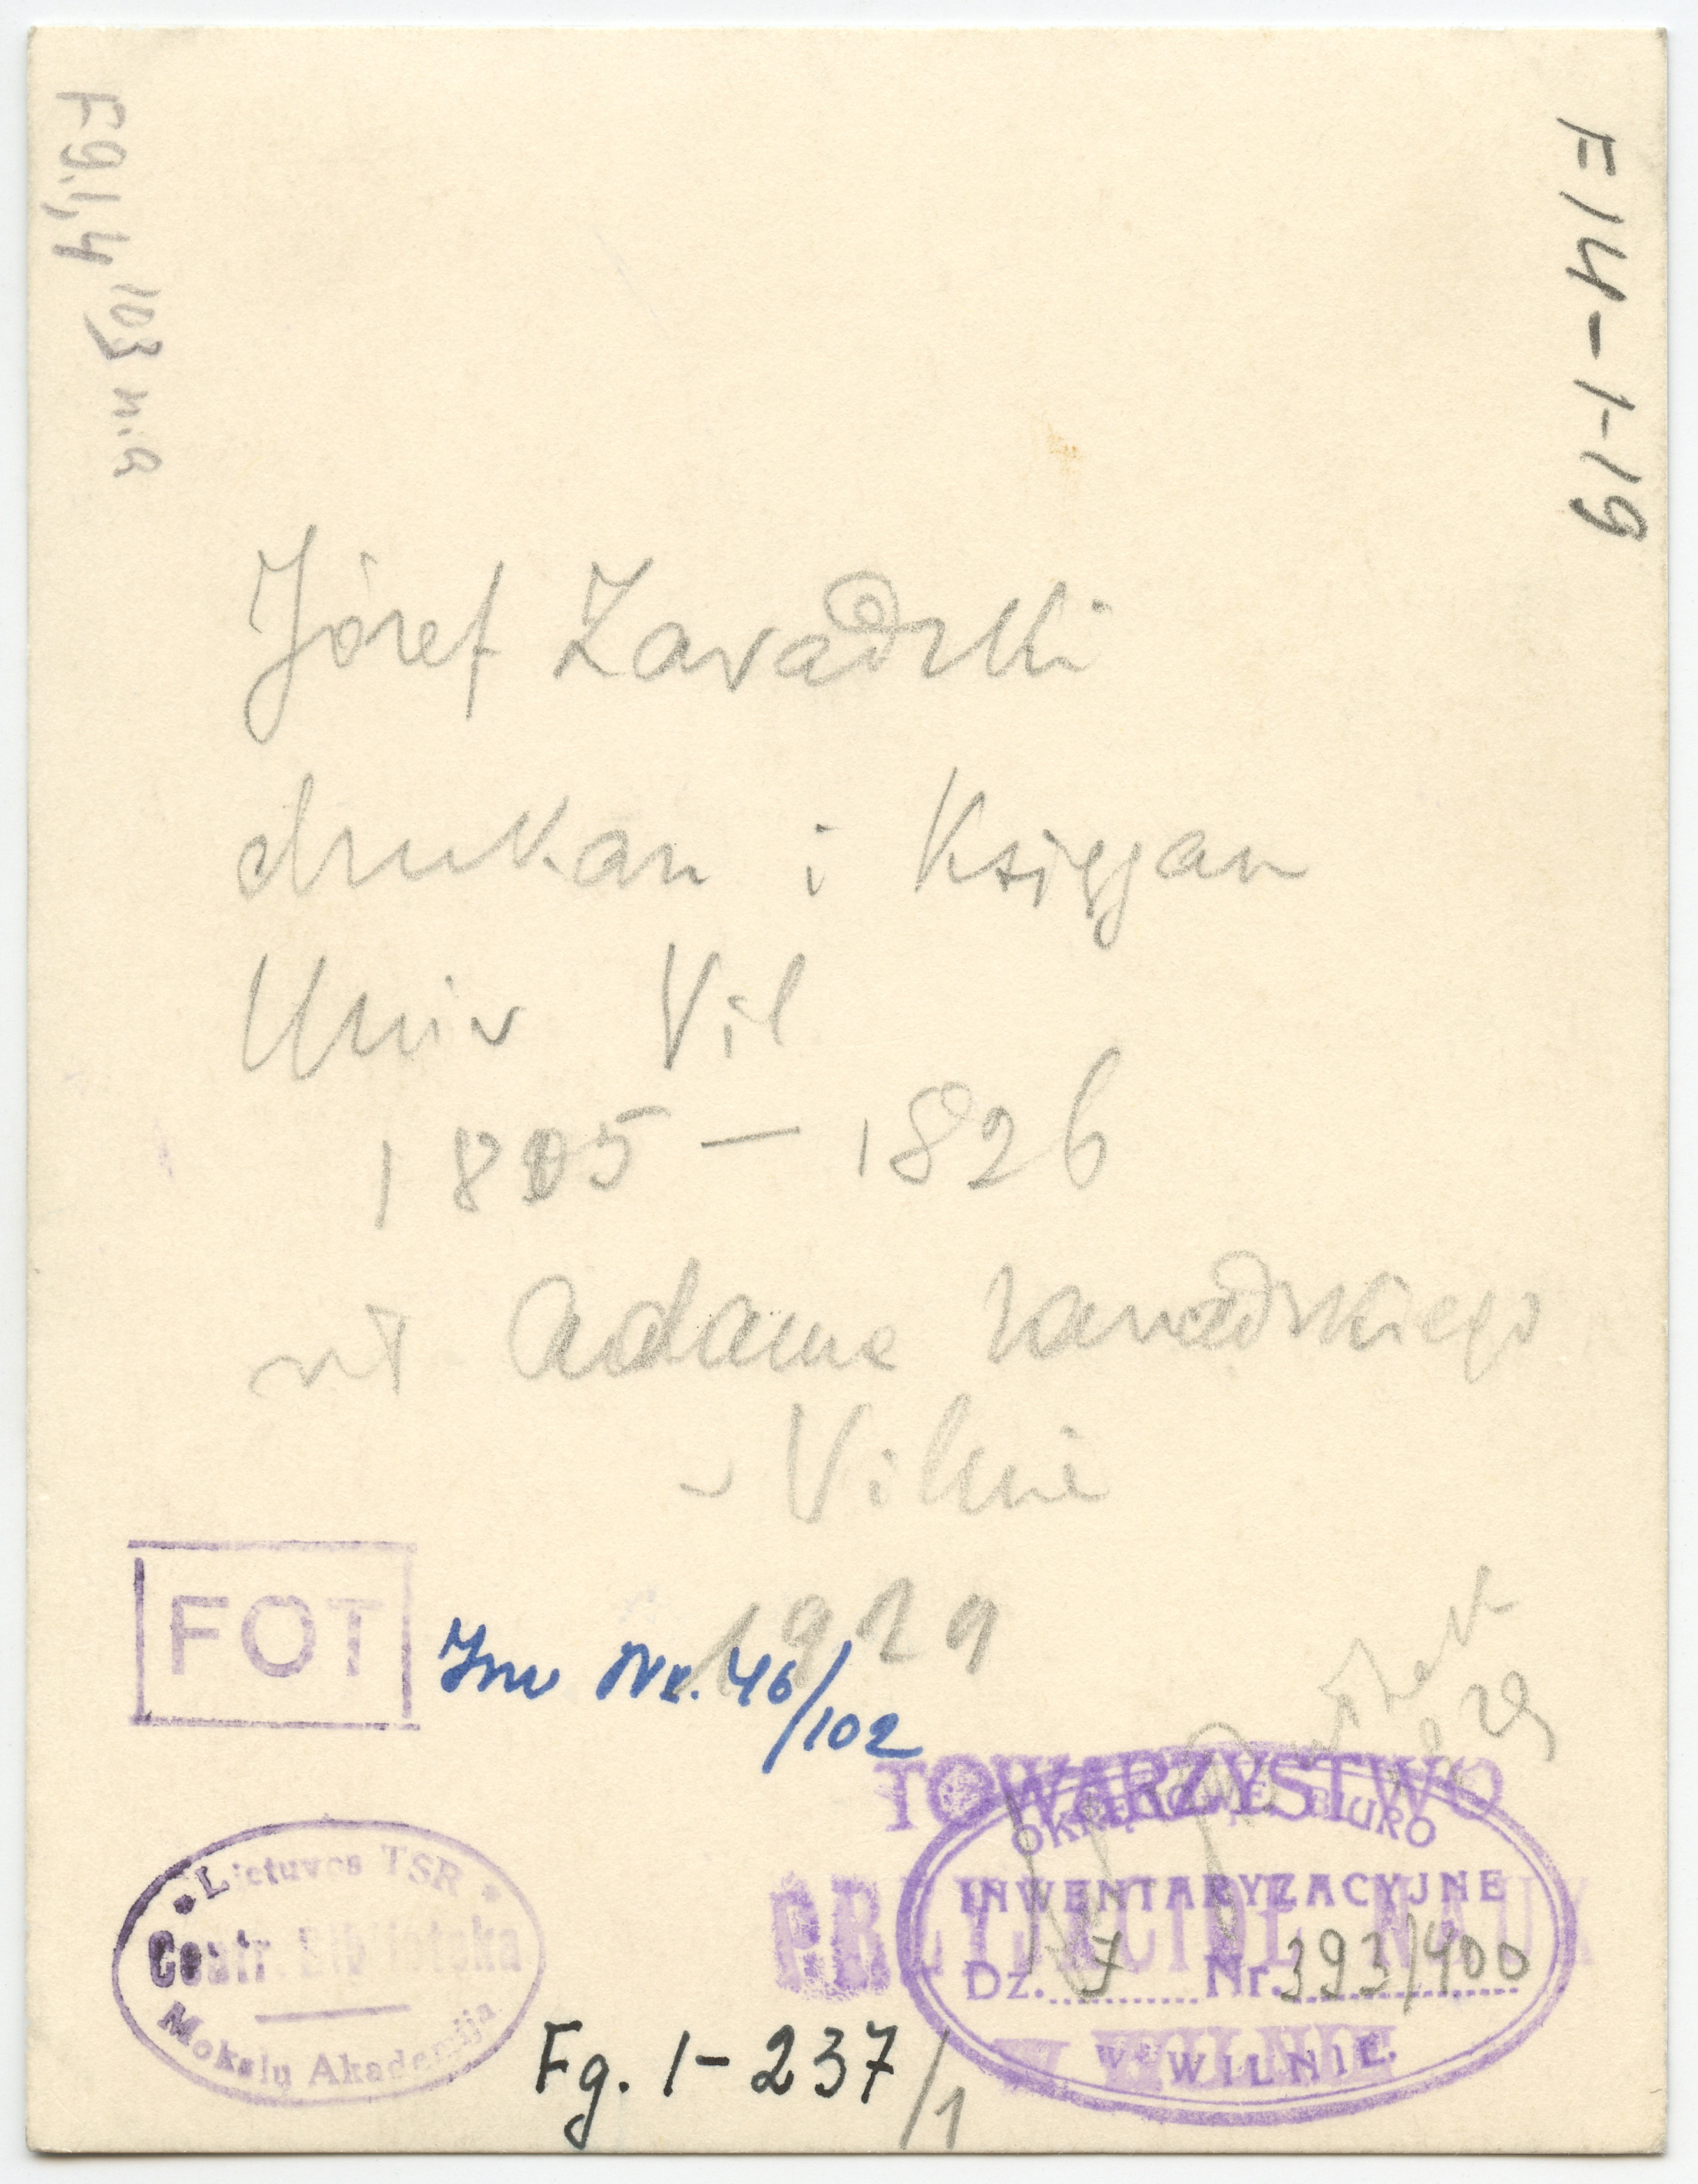 Fg.1,4 103 n.a
F14-1-19
Józef Zavadzki
drukarz i Księgarz
Univ Vil
1805 — 1826
wł Adama Zawadzkiego
w Vilnie
1929
FOT
Inv Nr. 46/102
29
TOWARZYSTWO
PRZYJACIÓŁ NAUK
W WILNIE
OKRĘGOWE BIURO
INWENTARYZACYJNE
Dz. 7 Nr. 393/400
W WILNIE.
Lietuvos TSR
Centr. Biblioteka
Mokslų Akademija
Fg. 1-237/1